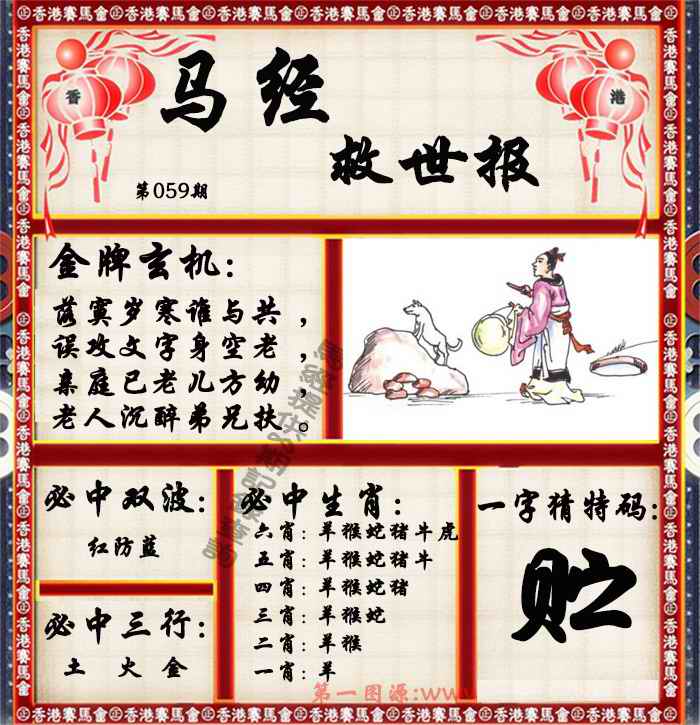 香港賽馬會
香 港
马经
救世报
第059期
金牌玄机:
落寞岁寒谁与共,
误攻文字身空老,
亲庭已老儿方幼,
老人沉醉弟兄扶。
必中双波:
红防蓝
必中三行:
土 火 金
必中生肖:
六肖:羊猴蛇猪牛虎
五肖:羊猴蛇猪牛
四肖:羊猴蛇猪
三肖:羊猴蛇
二肖:羊猴
一肖:羊
一字猜特码:
贮
第一图源:www